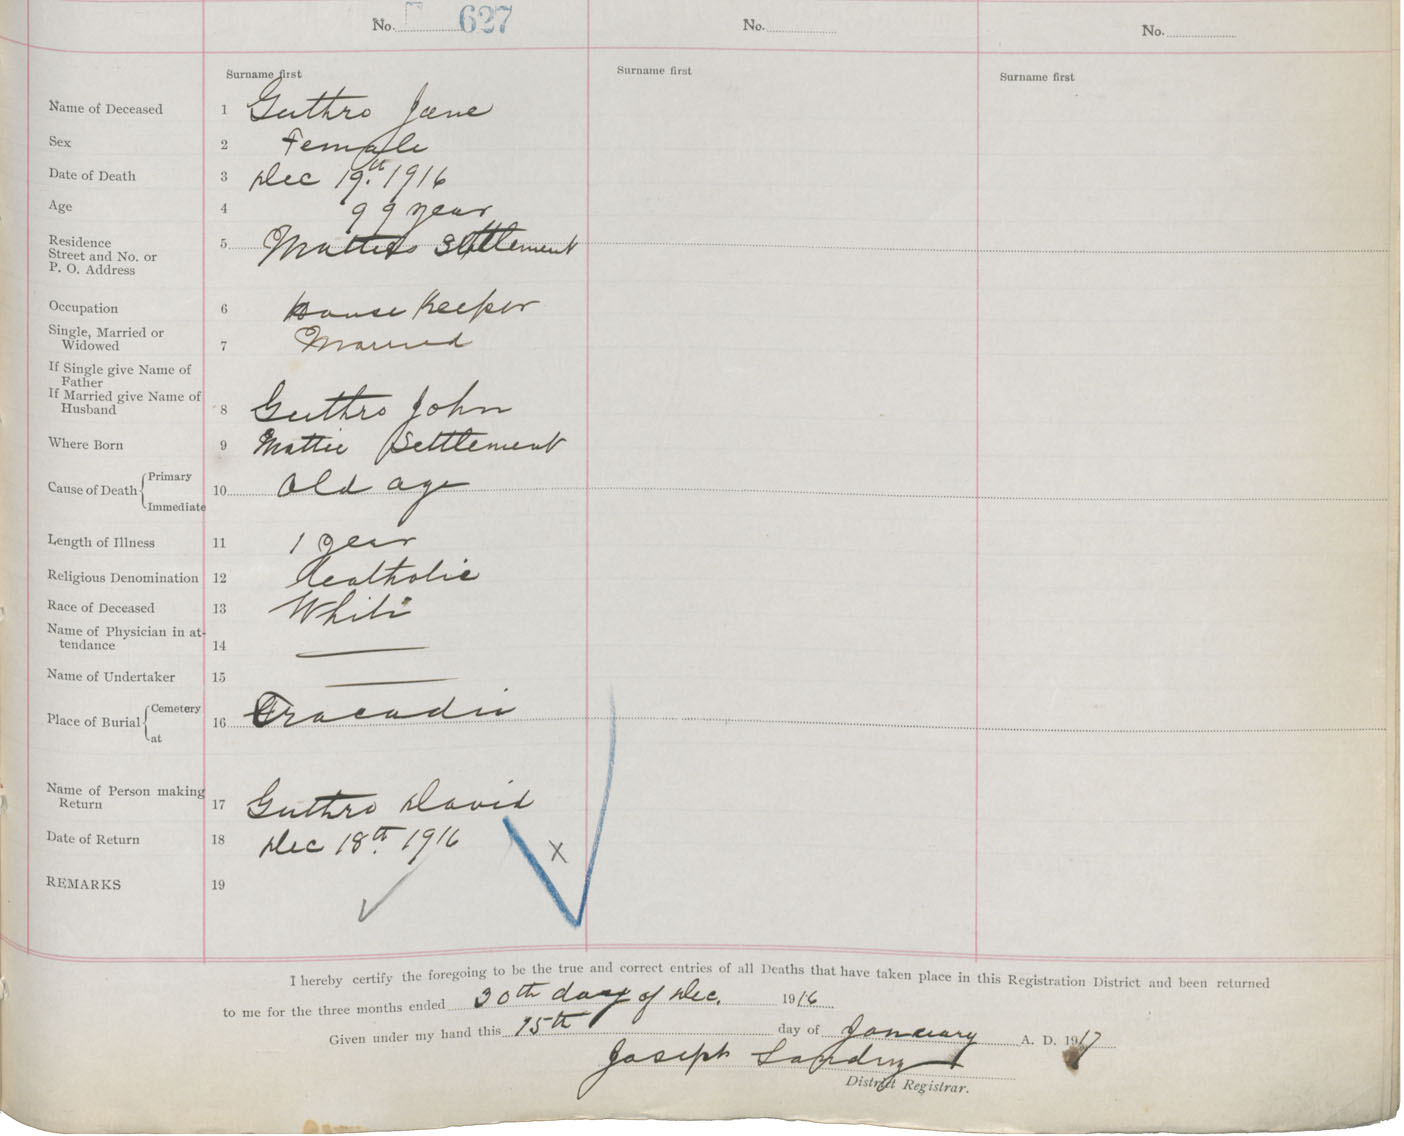 No. 627
No.
No.
Surname first
Surname first
Surname first
Name of Deceased 1 Guthro Jane
Sex 2 Female
Date of Death 3 Dec 19th. 1916
Age 4 99 year
Residence
Street and No. or
P. O. Address
5 Matties Settlement
Occupation 6 House Keeper
Single, Married or
Widowed 7 Married
If Single give Name of
Father
If Married give Name of
Husband 8 Guthro John
Where Born 9 Mattie Settlement
Cause of Death Primary
Immediate
10 Old age
Length of Illness 11 1 year
Religious Denomination 12 Catholic
Race of Deceased 13 White
Name of Physician in at-
tendance 14
Name of Undertaker 15
Place of Burial Cemetery
at
16 Tracadie
Name of Person making
Return 17 Guthro David
Date of Return 18 Dec 18th. 1916
X
REMARKS 19
I hereby certify the foregoing to be the true and correct entries of all Deaths that have taken place in this Registration District and been returned
to me for the three months ended 30th day of Dec. 1916
Given under my hand this 15th day of January A. D. 1917
Joseph Landry
District Registrar.